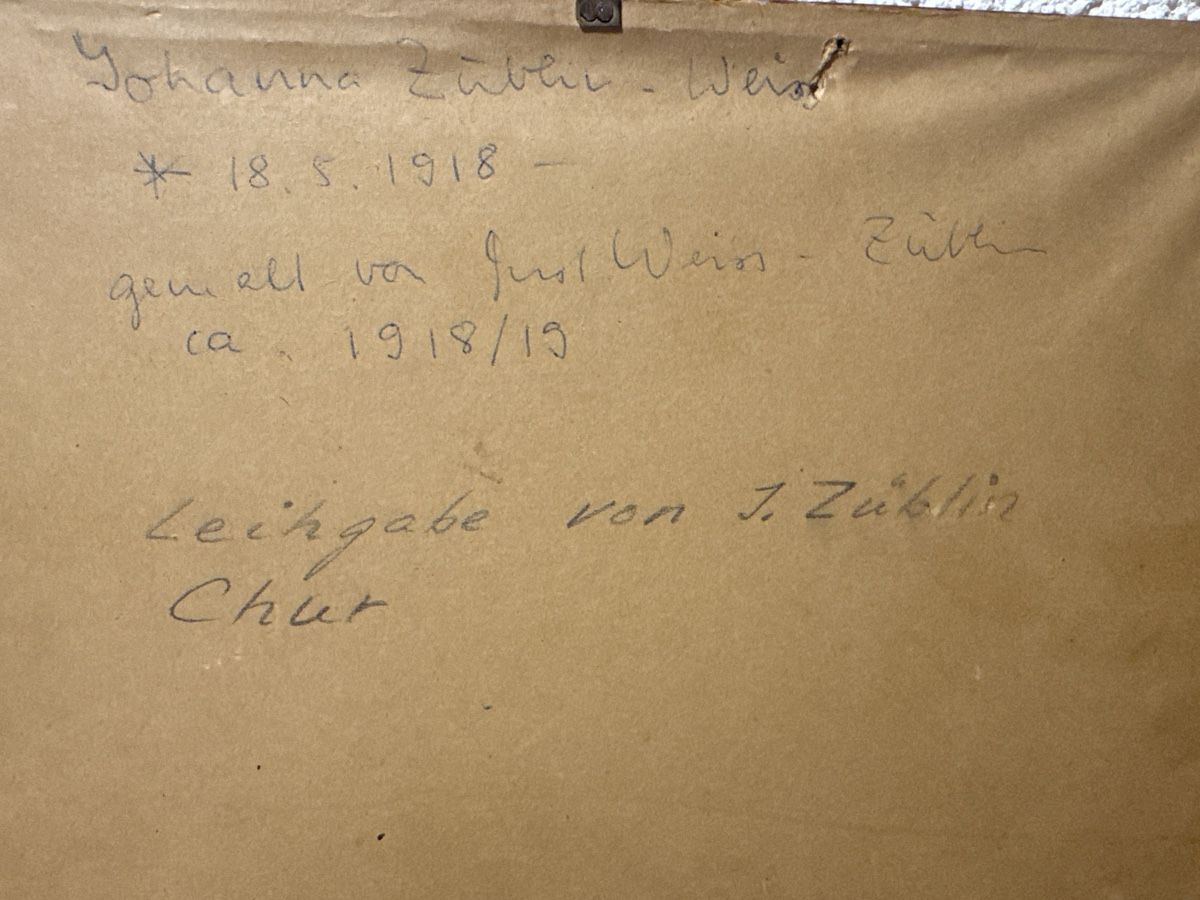 Johanna Züblin - Weiss
* 18. 5. 1918 –
gemalt von Just Weiss - Züblin
ca. 1918/19
Leihgabe von J. Züblin
Chur